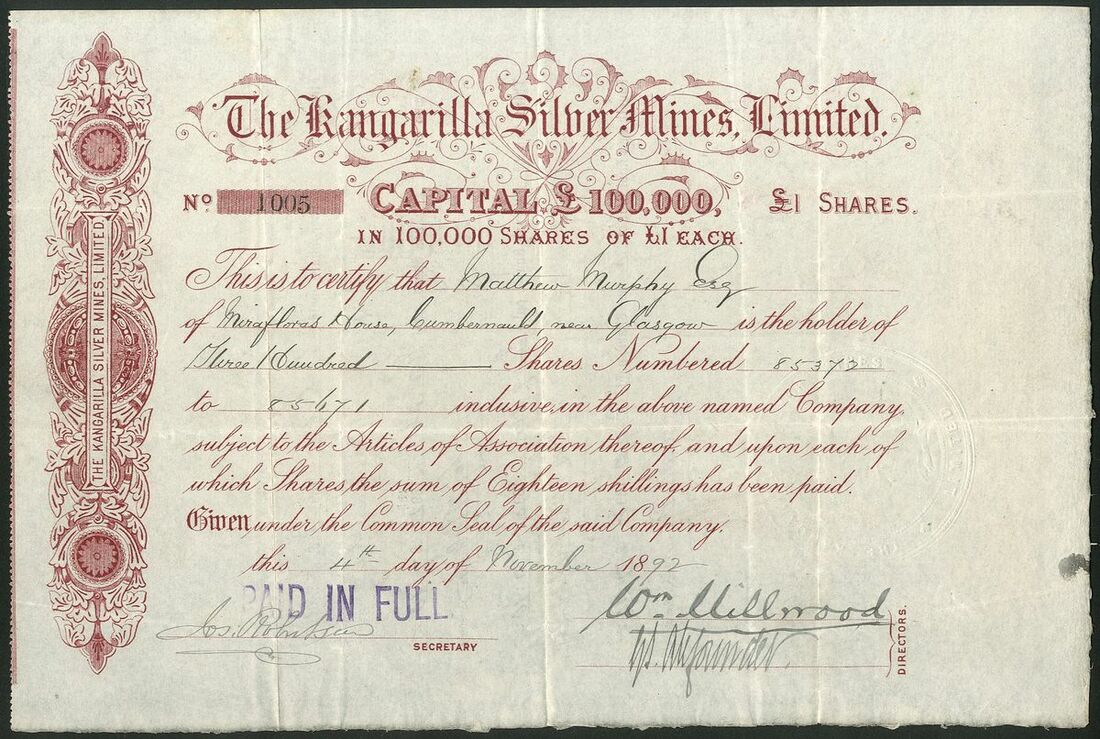 The Kangarilla Silver Mines, Limited.
No. 1005 CAPITAL £100,000, £1 SHARES.
IN 100,000 SHARES OF £1 EACH.
This is to certify that Matthew Murphy Esq
of Mirafloras House, Cumbernauld, near Glasgow is the holder of
Three Hundred Shares Numbered 85372
to 85671 inclusive, in the above named Company,
subject to the Articles of Association thereof, and upon each of
which Shares, the sum of Eighteen shillings has been paid.
Given under the Common Seal of the said Company,
this 4th day of November 1892
PAID IN FULL.
SECRETARY
Wm Millwood
DIRECTORS.
THE KANGARILLA SILVER MINES, LIMITED.